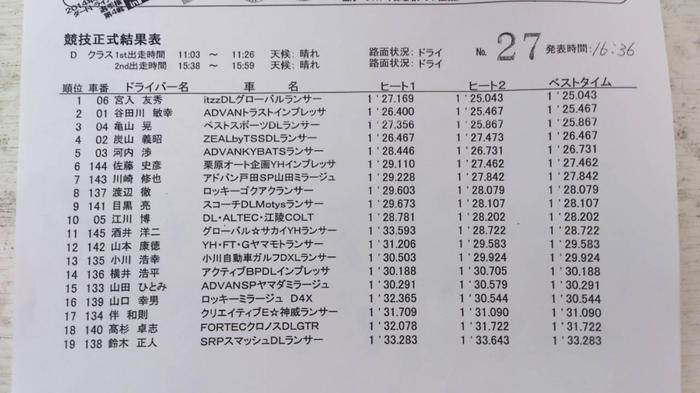 2014年
競技正式結果表
D クラス 1st出走時間 11:03 ～ 11:26 天候: 晴れ 路面状況: ドライ No. 27 発表時間: 16:36
2nd出走時間 15:38 ～ 15:59 天候: 晴れ 路面状況: ドライ
順位 車番 ドライバー名 車 名 ヒート1 ヒート2 ベストタイム
1 06 宮入 友秀 itzzDLグローバルランサー 1'27.169 1'25.043 1'25.043
2 01 谷田川 敏幸 ADVANトラストインプレッサ 1'26.400 1'25.467 1'25.467
3 04 亀山 晃 ベストスポーツDLランサー 1'27.356 1'25.867 1'25.867
4 02 炭山 義昭 ZEALbyTSSDLランサー 1'26.467 1'27.473 1'26.467
5 03 河内 渉 ADVANKYBATSランサー 1'28.446 1'26.731 1'26.731
6 144 佐藤 史彦 栗原オート企画YHインプレッサ 1'29.110 1'27.462 1'27.462
7 143 川崎 修也 アドバン戸田SP山田ミラージュ 1'29.228 1'27.842 1'27.842
8 137 渡辺 徹 ロッキーゴクアクランサー 1'29.603 1'28.079 1'28.079
9 141 目黒 亮 スコーチDLMotysランサー 1'29.673 1'28.107 1'28.107
10 05 江川 博 DL・ALTEC・江陵COLT 1'28.781 1'28.202 1'28.202
11 145 酒井 洋二 グローバル☆サカイYHランサー 1'33.593 1'28.722 1'28.722
12 142 山本 康徳 YH・FT・Gヤマモトランサー 1'31.206 1'29.583 1'29.583
13 135 小川 浩幸 小川自動車ガルフDXLランサー 1'30.503 1'29.924 1'29.924
14 136 横井 浩平 アクティブBPDLインプレッサ 1'30.188 1'30.705 1'30.188
15 133 山田 ひとみ ADVANSPヤマダミラージュ 1'30.291 1'30.579 1'30.291
16 139 山口 幸男 ロッキーミラージュ D4X 1'32.365 1'30.544 1'30.544
17 134 伴 和則 クリエイティブE☆神威ランサー 1'31.709 1'31.090 1'31.090
18 140 髙杉 卓志 FORTECクロノスDLGTR 1'32.078 1'31.722 1'31.722
19 138 鈴木 正人 SRPスマッシュDLランサー 1'33.283 1'33.643 1'33.283